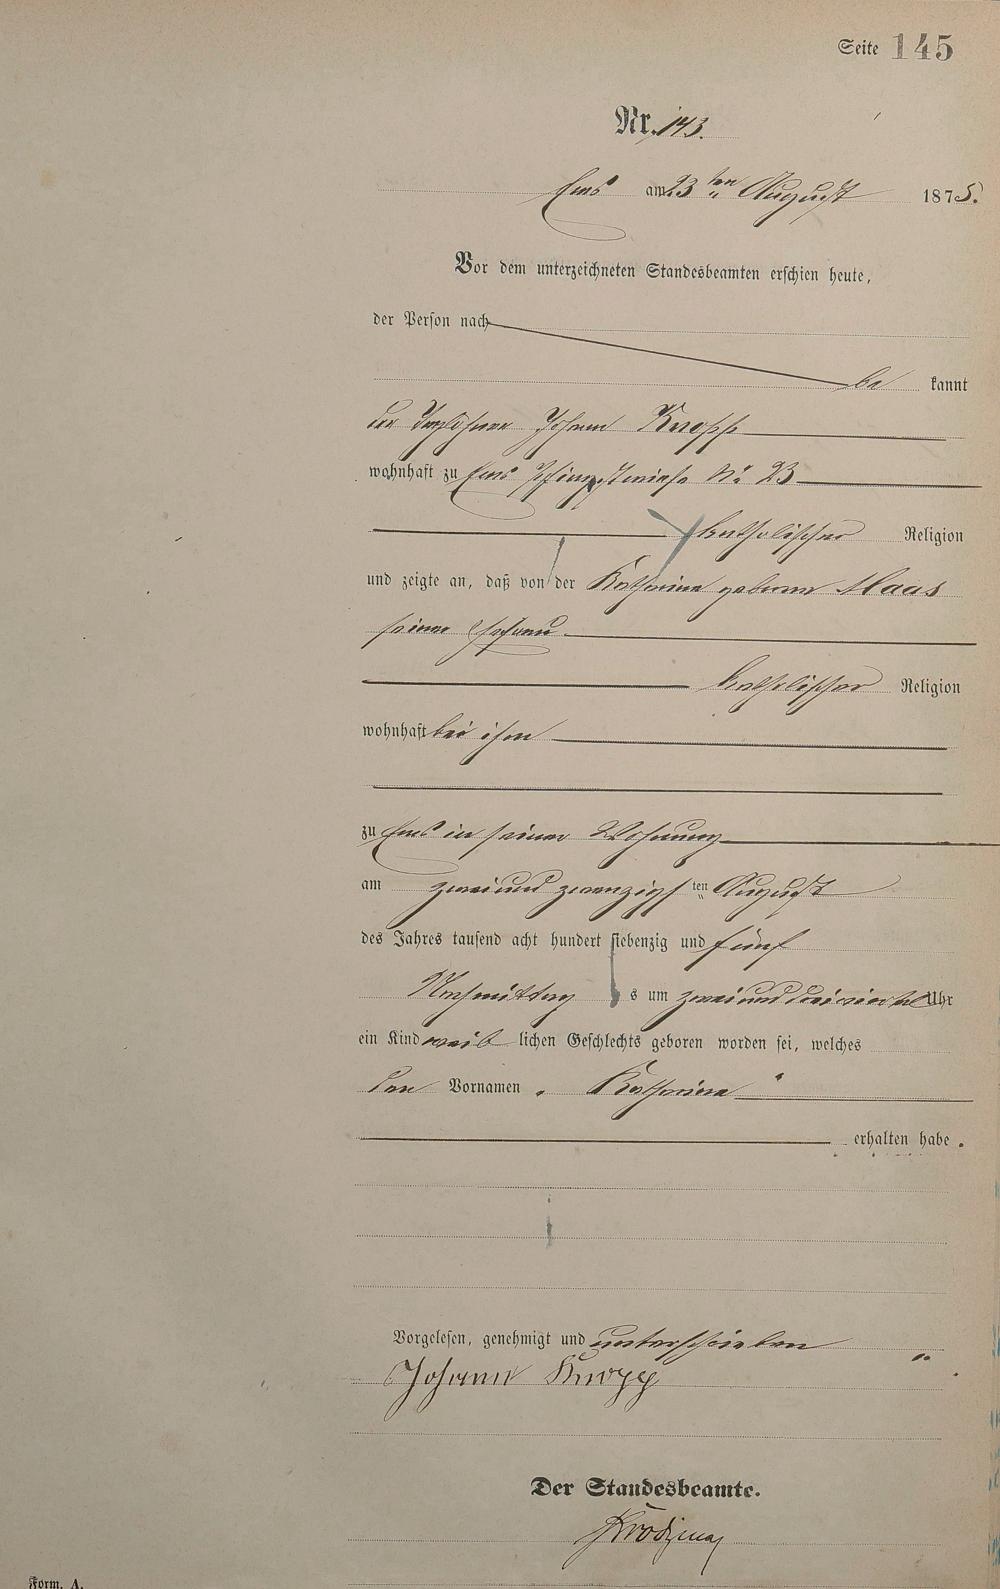 Seite 145
Nr. 143.
Ems am 23 ten August 1875.
Vor dem unterzeichneten Standesbeamten erschien heute,
der Person nach
be kannt
der Taglöhner Johann Knopp
wohnhaft zu Ems Pfingstwiese No 23
katholischer Religion
und zeigte an, daß von der Katharina geborene Maas
seiner Ehefrau
katholischer Religion
wohnhaft bei ihm
zu Ems in seiner Wohnung
am zwei und zwanzigsten August
des Jahres tausend acht hundert siebenzig und fünf
Nachmittag s um zwei und drei viertel Uhr
ein Kind weib lichen Geschlechts geboren worden sei, welches
den Vornamen „ Katharina “
erhalten habe.
Vorgelesen, genehmigt und unterschrieben
Johann Knopp
Der Standesbeamte.
Form. A.